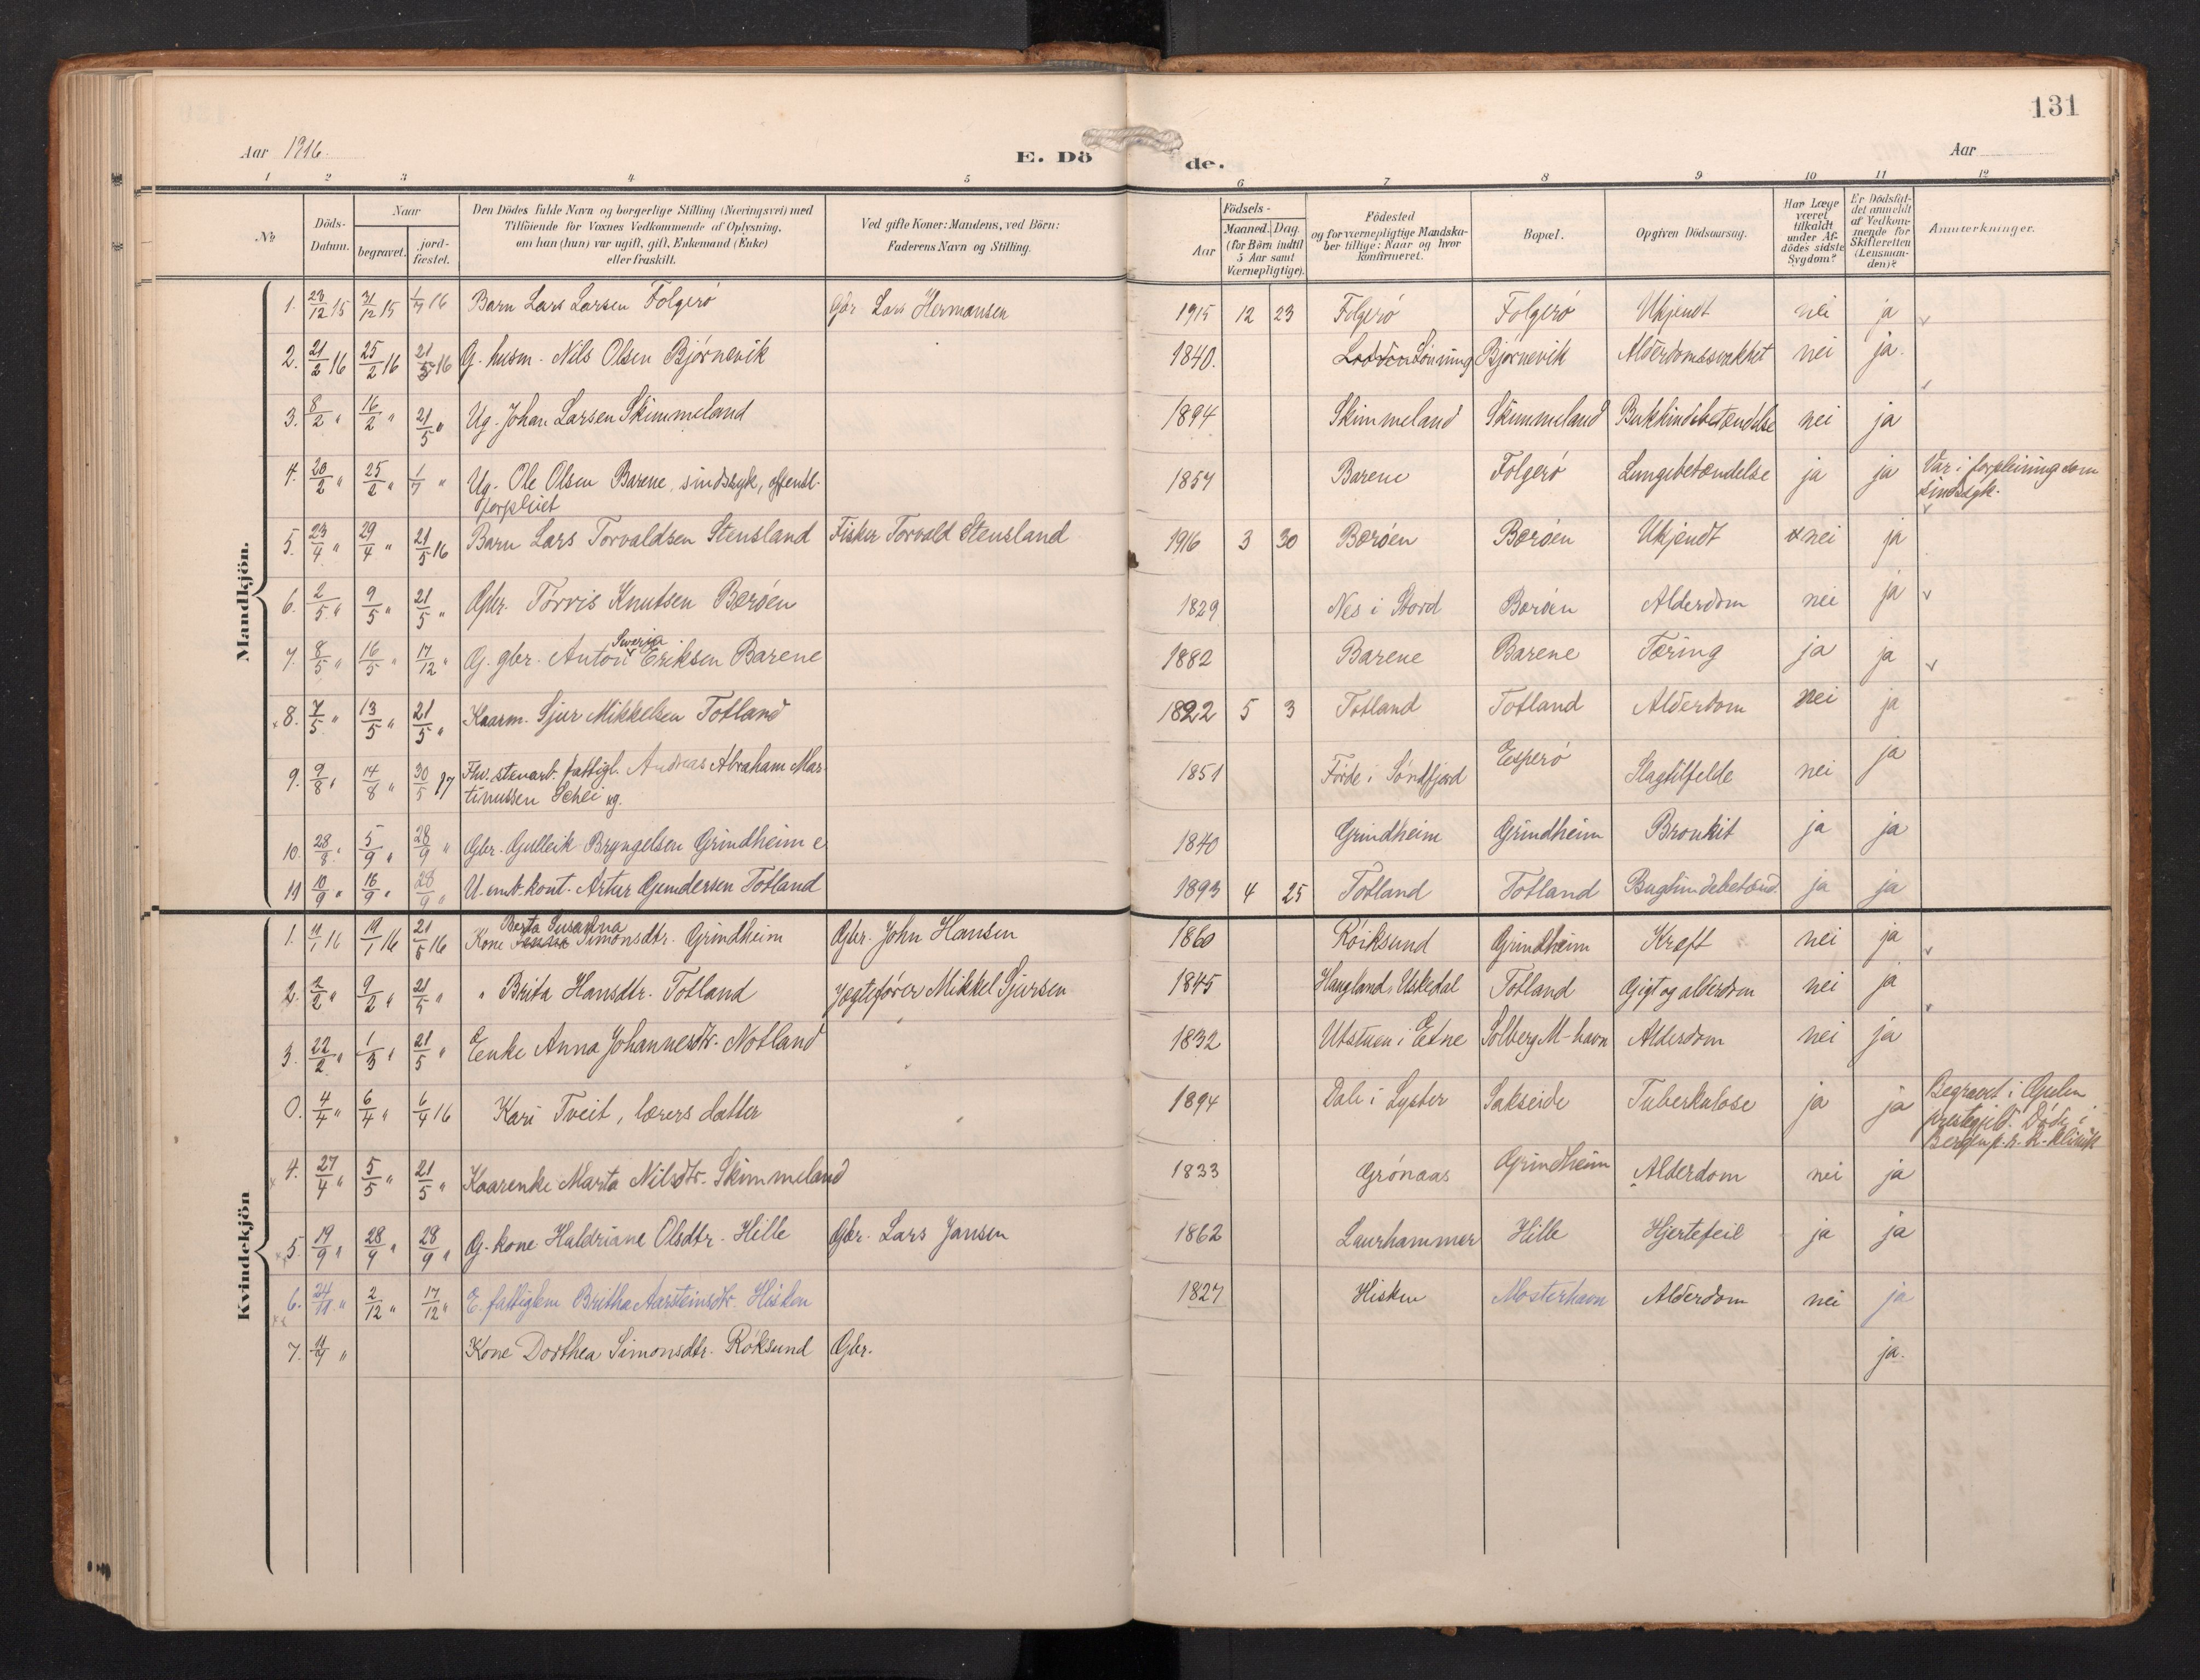 131
Aar 1916.
E. Dö de.
Aar
1 2 3 4 5 6 7 8 9 10 11 12
No
Döds-Datum.
Naar
begravet.
jord-fæstet.
Den Dödes fulde Navn og borgerlige Stilling (Næringsvei) med
Tilföiende for Voxnes Vedkommende af Oplysning,
om han (hun) var ugift, gift, Enkemand (Enke)
eller fraskilt.
Ved gifte Koner: Mandens, ved Börn:
Faderens Navn og Stilling.
Födsels-
Aar
Maaned. Dag.
(for Börn indtil
5 Aar samt
Værnepligtige).
Födested
og for værnepligtige Mandska-
ber tillige: Naar og hvor
konfirmeret.
Bopæl.
Opgiven Dödsaarsag.
Har Læge
været
tilkaldt
under Af-
dödes sidste
Sygdom?
Er Dödsfal-
det anmeldt
af Vedkom-
mende for
Skifteretten
(Lensman-
den)?
Anmerkninger.
Mandkjön.
1. 23/12 15 31/12 15 1/7 16 Barn Lars Larsen Folgerö Gbr Lars Hermansen 1915 12 23 Folgerö Folgerö Ukjendt nei ja
2. 21/2 16 25/2 16 21/5 16 G. husm. Nils Olsen Bjørnevik 1840. Lønning Bjørnevik Alderdomssvakhet nei ja.
3. 8/2 " 16/2 " 21/5 " Ug. Johan Larsen Skimmeland 1894 Skimmeland Skimmeland Bukhindebetændelse nei ja
4. 20/2 " 25/2 " 1/7 " Ug. Ole Olsen Barene, sindssyk, offentl. 1857 Barene Folgerö Lungebetændelse ja ja Var i forpleining som
forpleiet sindssyk.
5. 23/4 " 29/4 " 21/5 16 Barn Lars Torvaldsen Stensland Fisker Torvald Stensland 1916 3 30 Børøen Børøen Ukjendt nei ja
6. 2/5 " 9/5 " 21/5 " Gbr. Tørris Knutsen Børøen 1829 Nes i Stord Børøen Alderdom nei ja
7. 8/5 " 16/5 " 17/12 " G. gbr. Anton Eriksen Barene 1882 Barene Barene Tæring ja ja
8. 7/5 " 13/5 " 21/5 " Kaarm. Sjur Mikkelsen Totland 1822 5 3 Totland Totland Alderdom nei ja
9. 9/8 " 14/8 " 30/5 17 Fhv. stenarb. fattigl. Andreas Abraham Mar- 1851 Førde i Søndfjord Esperø Slagtilfelde nei ja
tinussen Schei ug.
10. 28/8 " 5/9 " 28/9 " Gbr. Gulleik Bryngelsen Grindheim e 1840 Grindheim Grindheim Bronkit ja ja
11 10/9 " 16/9 " 28/9 " U. emb. kont. Artur Gundersen Totland 1893 4 25 Totland Totland Bughindebetænd. ja ja
Kvindekjön
Berta Susanna
1. 11/1 16 19/1 16 21/5 16 Kone Simonsdtr. Grindheim Gbr. John Hansen 1860 Røiksund Grindheim Kreft nei ja
2. 2/2 " 9/2 " 21/5 " " Brita Hansdtr. Totland Jægtefører Mikkel Sjursen 1845 Haugland, Uskedal Totland Gigt og alderdom nei ja
3. 22/2 " 1/3 " 21/5 " Enke Anna Johannesdtr. Notland 1832 Utstuen i Etne Solberg M-havn Alderdom nei ja
0. 4/4 " 6/4 " 6/4 16 Kari Tveit, lærers datter 1894 Dale i Lyster Sakseide Tuberkulose ja ja Begravet i Gulen
prestegjeld. Døde i
Bergen klinik
4. 27/4 " 5/5 " 21/5 " Kaarenke Marta Nilsdtr. Skimmeland 1833 Grønaas Grindheim Alderdom nei ja
5. 19/9 " 28/9 " 28/9 " G. kone Haldriane Olsdtr. Hille Gbr. Lars Jansen 1862 Laurhammer Hille Hjertefeil ja ja
6. 24/11 " 2/12 " 17/12 " E. fattiglem Britha Aarsteinsdtr. Hisken 1827 Hisken Mosterhavn Alderdom nei ja
7. " Kone Dorthea Simonsdtr. Røksund Gbr. ja.